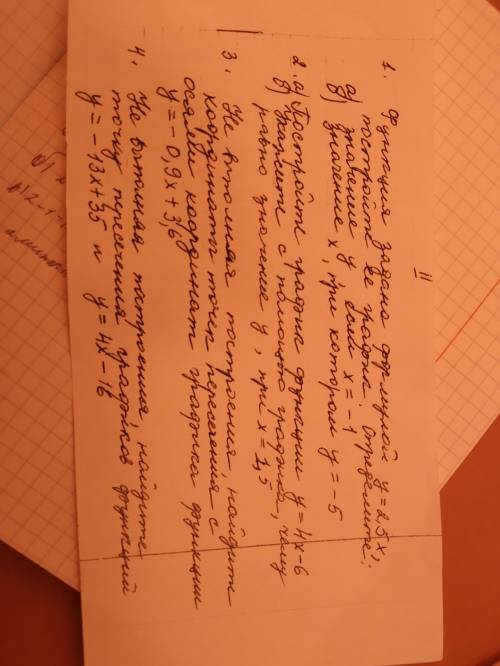 II
1. Функция задана формулой y=2,5x,
постройте её график. Определите:
а) значение y для x=-1
б) значение x, при котором y=-5
2. а) Постройте график функции y=4x-6
б) Укажите с помощью графика, чему
равно значение y, при x=1,5
3. Не выполняя построения, найдите
координаты точек пересечения с
осями координат графика функции
y=-0,9x+3,6
4. Не выполняя построения, найдите
точку пересечения графиков функций
y=-13x+35 и y=4x-16